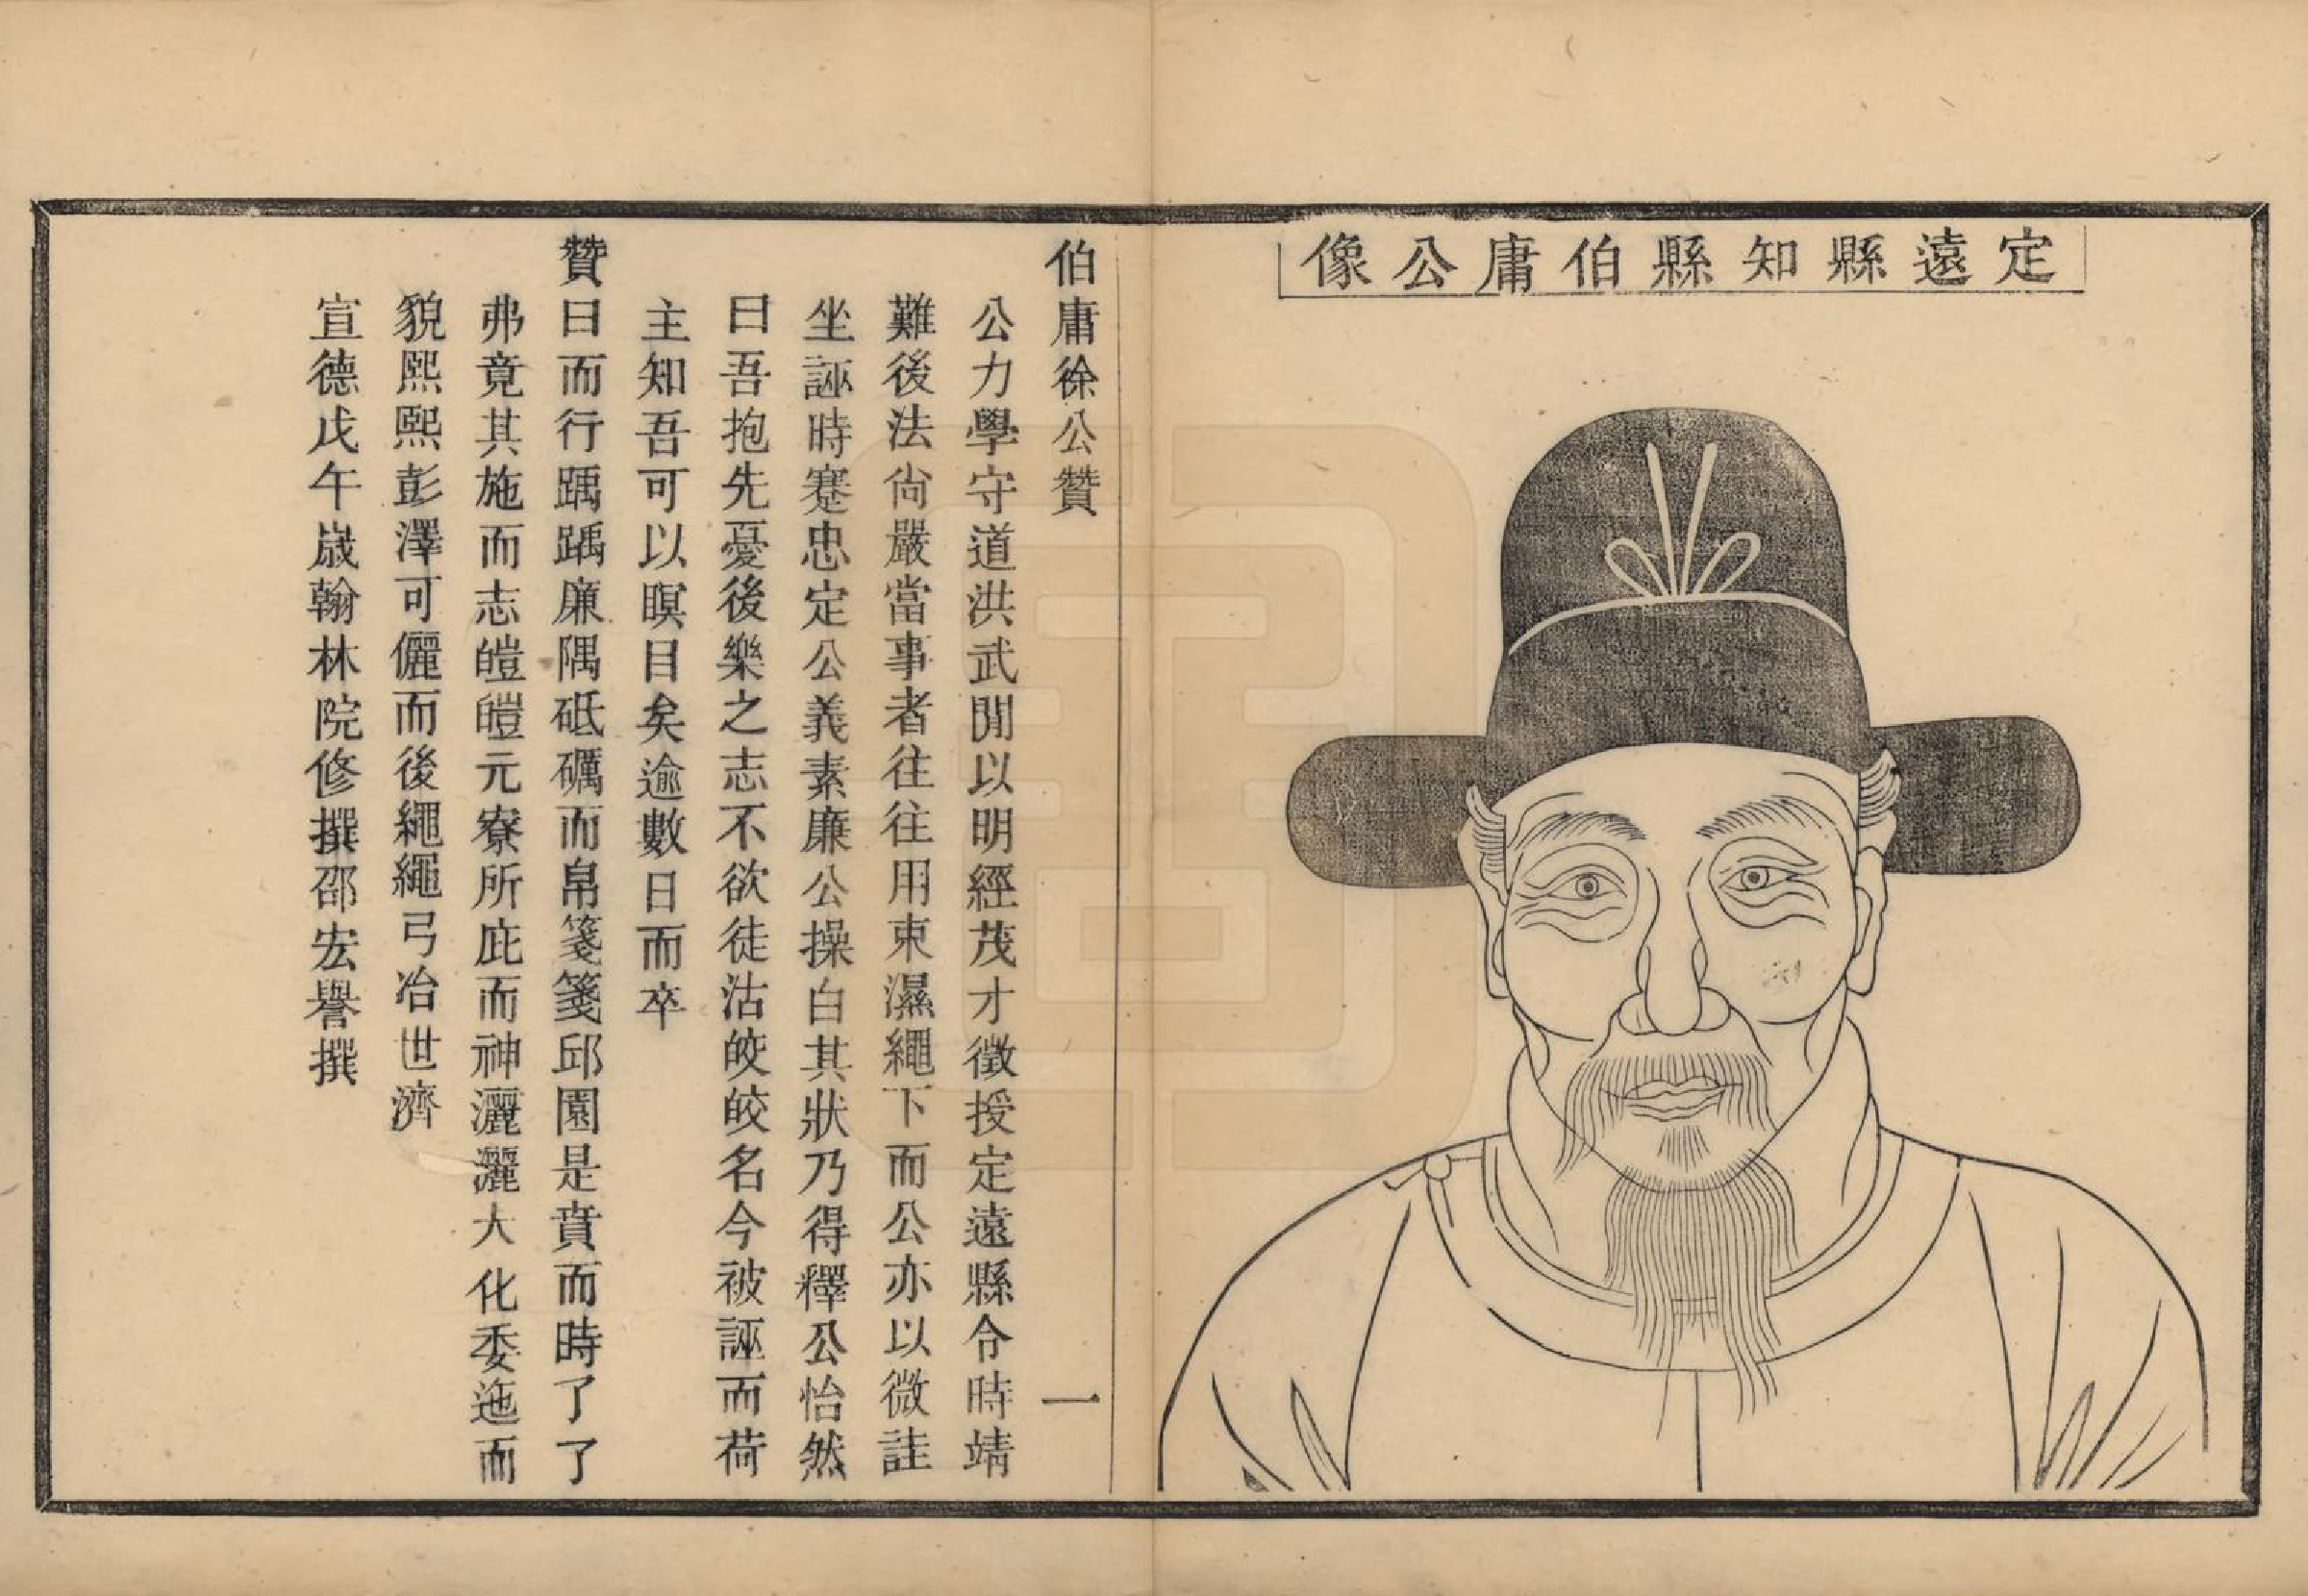 定遠縣知縣伯庸公像
伯庸徐公贊 一
公力學守道洪武閒以明經茂才徵授定遠縣令時靖
難後法尙嚴當事者往往用束濕繩下而公亦以微詿
坐誣時蹇忠定公義素廉公操白其狀乃得釋公怡然
曰吾抱先憂後樂之志不欲徒沽皎皎名今被誣而荷
主知吾可以瞑目矣逾數日而卒
贊曰而行踽踽廉隅砥礪而帛箋箋邱園是賁而時了了
弗竟其施而志皚皚元寮所庇而神灑灑大化委迤而
貌熙熙彭澤可儷而後繩繩弓冶世濟
宣德戊午歲翰林院修撰邵宏譽撰